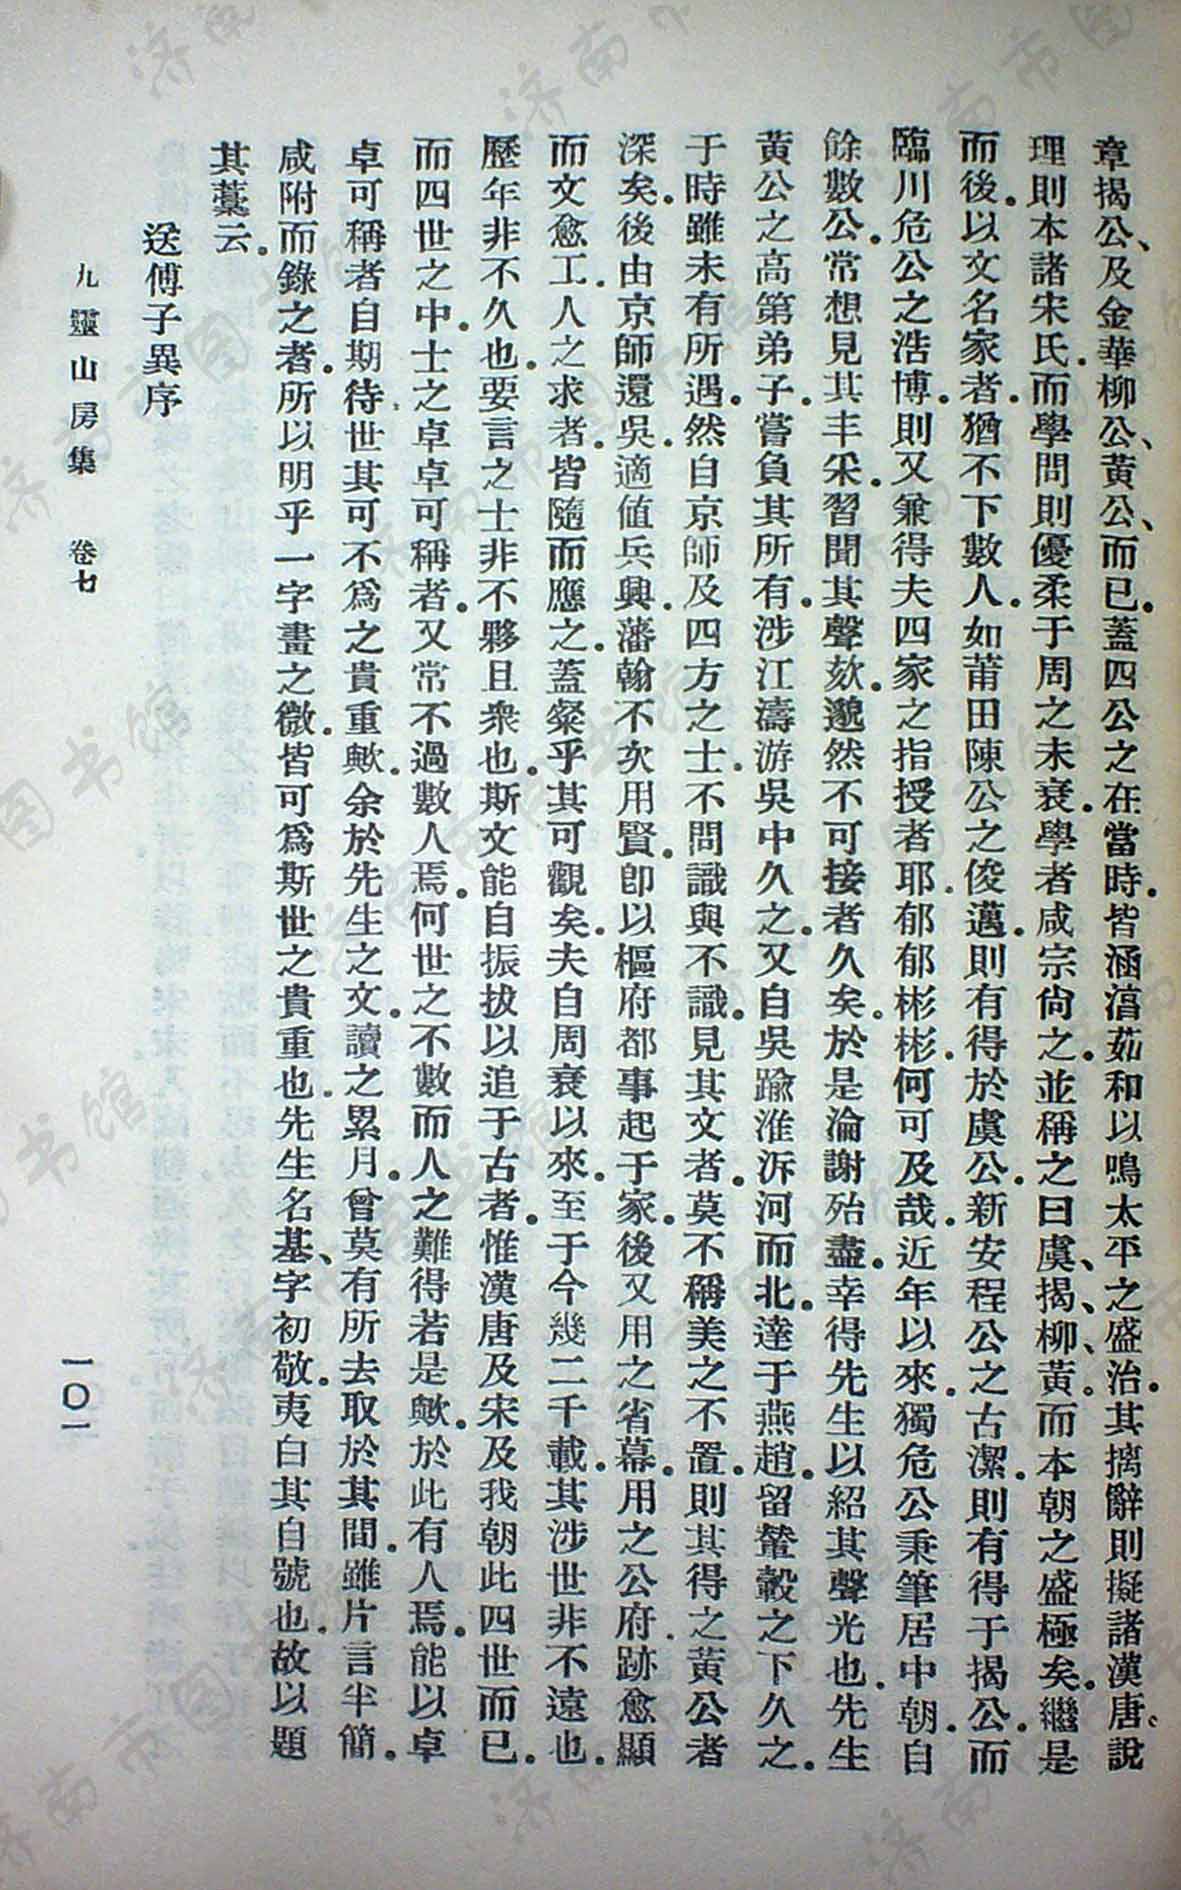 章揭公、及金華柳公、黃公、而已。蓋四公之在當時。皆涵淯茹和以鳴太平之盛治。其摛辭則擬諸漢唐。說
理則本諸宋氏。而學問則優柔于周之未衰。學者咸宗尙之。並稱之曰虞、揭、柳、黃。而本朝之盛極矣。繼是
而後。以文名家者。猶不下數人。如莆田陳公之俊邁。則有得於虞公。新安程公之古潔。則有得于揭公。而
臨川危公之浩博。則又兼得夫四家之指授者耶。郁郁彬彬。何可及哉。近年以來。獨危公秉筆居中朝。自
餘數公。常想見其丰采。習聞其聲欬。邈然不可接者久矣。於是淪謝殆盡。幸得先生以紹其聲光也。先生
黃公之高第弟子。嘗負其所有。涉江濤。游吳中久之。又自吳踰淮泝河而北。達于燕趙。留輦轂之下久之。
于時雖未有所遇。然自京師及四方之士。不問識與不識。見其文者。莫不稱美之不置。則其得之黃公者
深矣。後由京師還吳。適値兵興。藩翰不次用賢。卽以樞府都事起于家。後又用之省幕。用之公府。跡愈顯
而文愈工。人之求者。皆隨而應之。蓋粲乎其可觀矣。夫自周衰以來。至于今幾二千載。其涉世非不遠也。
歷年非不久也。要言之士非不夥且衆也。斯文能自振拔以追于古者。惟漢唐及宋及我朝此四世而已。
而四世之中。士之卓卓可稱者。又常不過數人焉。何世之不數而人之難得若是歟。於此有人焉。能以卓
卓可稱者自期待。世其可不爲之貴重歟。余於先生之文。讀之累月。曾莫有所去取於其間。雖片言半簡。
咸附而錄之者。所以明乎一字畫之微。皆可爲斯世之貴重也。先生名基、字初敬。夷白其自號也。故以題
其藁云。
送傅子異序
九靈山房集 卷七
一〇一